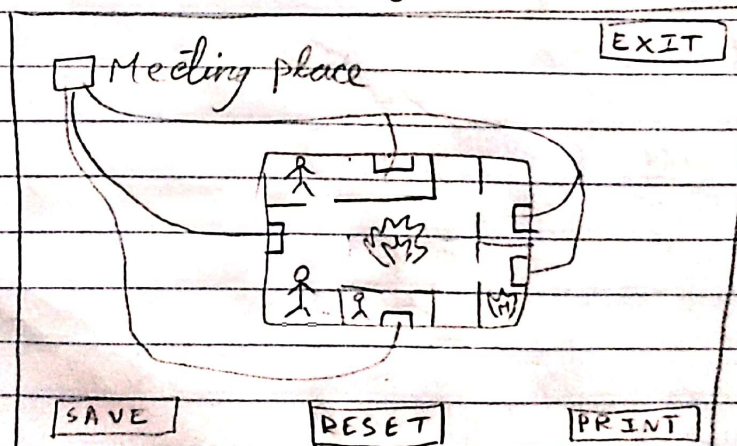 EXIT
Meeting place
SAVE
RESET
PRINT